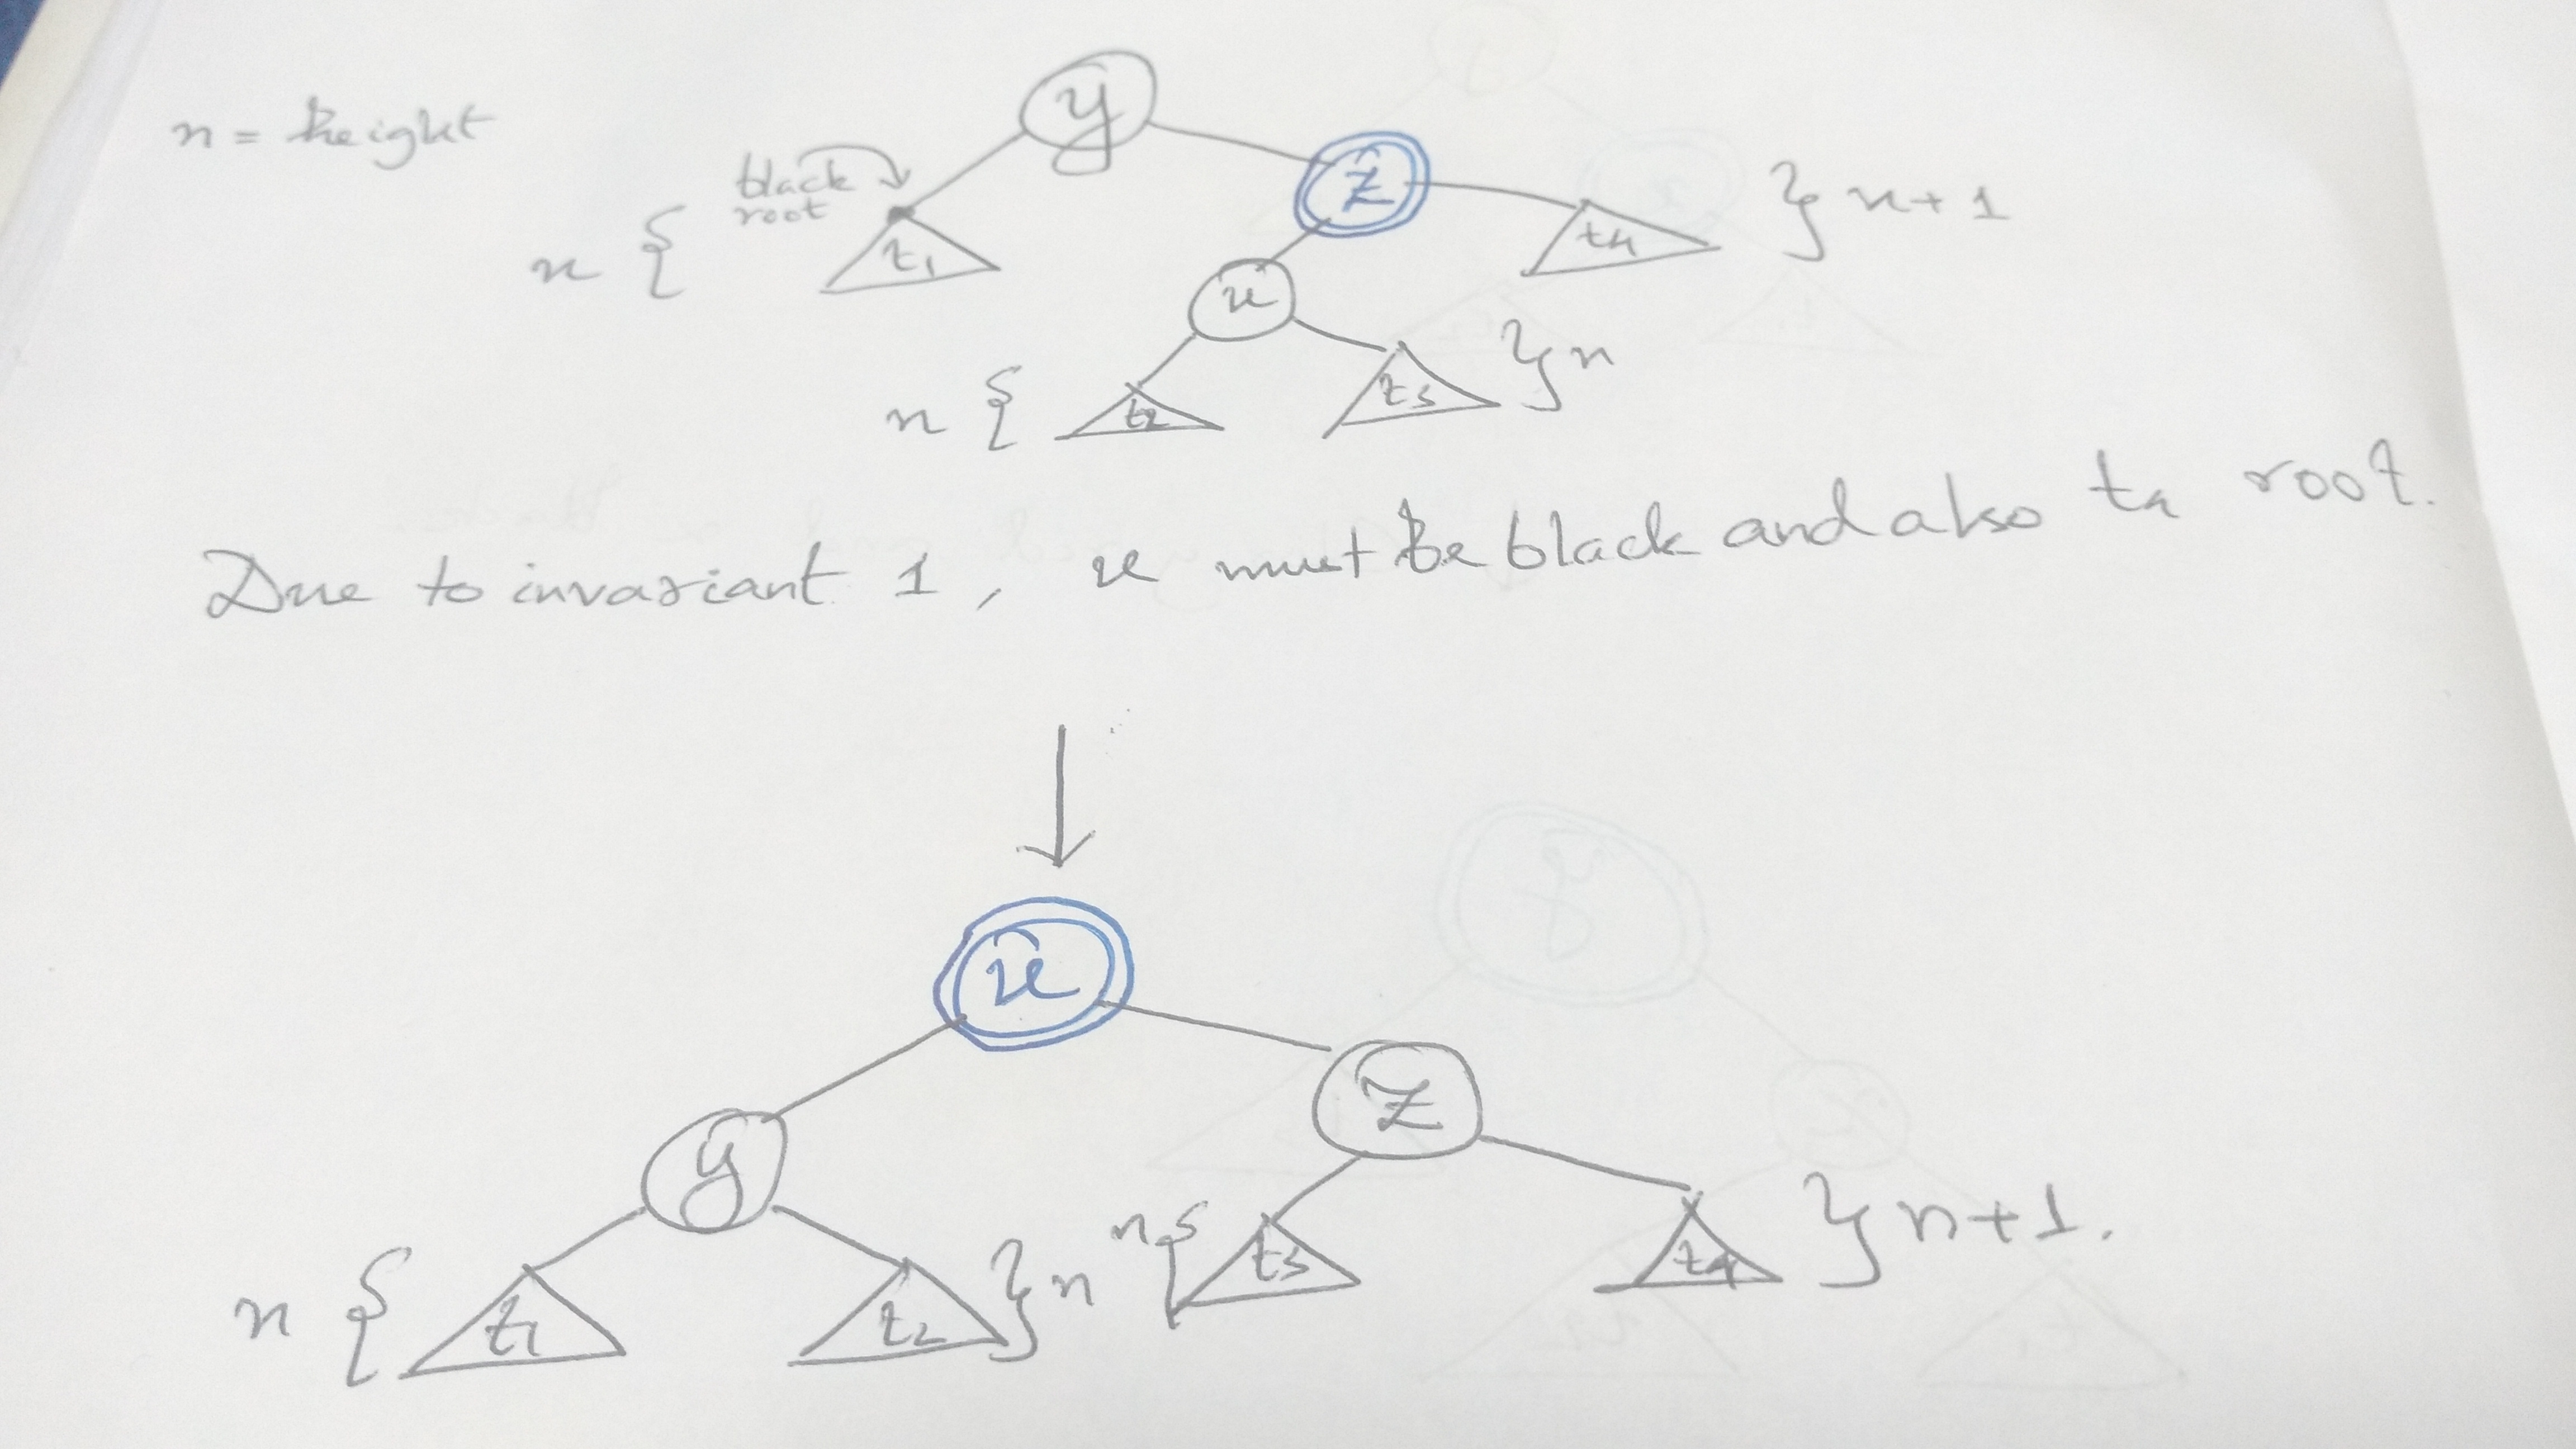 n = height
y
black
root
z
n {
t1
t4
} n+1
u
n {
t2
t3
} n
Due to invariant 1, u must be black and also t4 root.
u
y
z
n {
t1
t2
} n
n {
t3
t4
} n+1.